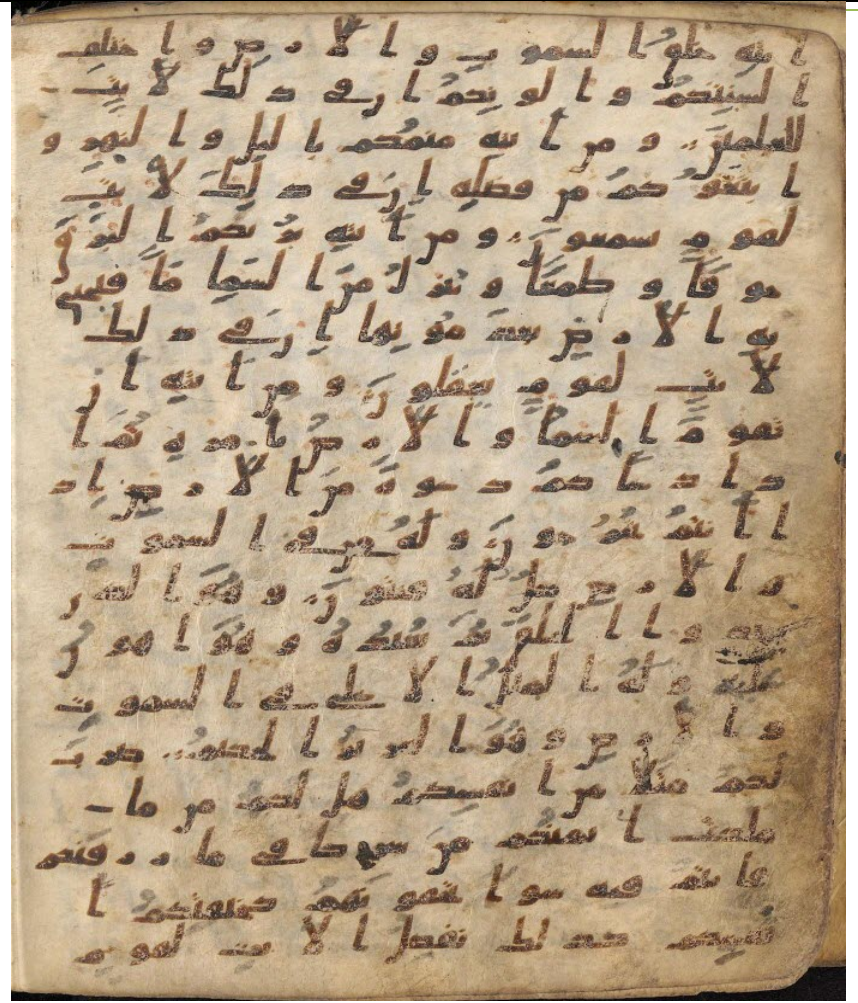 ا يته خلق ا لسموت و ا لا ر ض و ا ختلف
ا لسنتكم و ا لو نكم ا ن في ذ لك لا يت
للعلمين و من ا يته منمكم با ليل و ا لنهر و
ا بتغو كم من فضله ا ن في ذ لك لا يت
لقو م يسمعو ن و من ا يته ير يكم ا لبر ق
خو فا و طمعا و ينز ل من ا لسما ما فيحيي
به ا لا ر ض بعد مو تها ا ن في ذ لك
لا يت لقو م يعقلو ن و من ا يته ا ن
تقو م ا لسما و ا لا ر ض با مر ه ثم ا
ذ ا د عا كم د عو ة من ا لا ر ض ا ذ
ا ا نتم تخر جو ن و له من في ا لسموت
و ا لا ر ض كل له قنتو ن و هو ا لذ ي
يبد و ا ا لخلق ثم يعيد ه و هو ا هو ن
عليه و له ا لمثل ا لا علي في ا لسموت
و ا لا ر ض و هو ا لعز يز ا لحكيم ضر ب
لكم مثلا من ا نفسكم هل لكم من ما
ملكت ا يمنكم من شر كا في ما ر ز قنكم
فا نتم فيه سو ا تخفو نهم كخيفتكم ا
نفسكم كذ لك نفصل ا لا يت لقو م